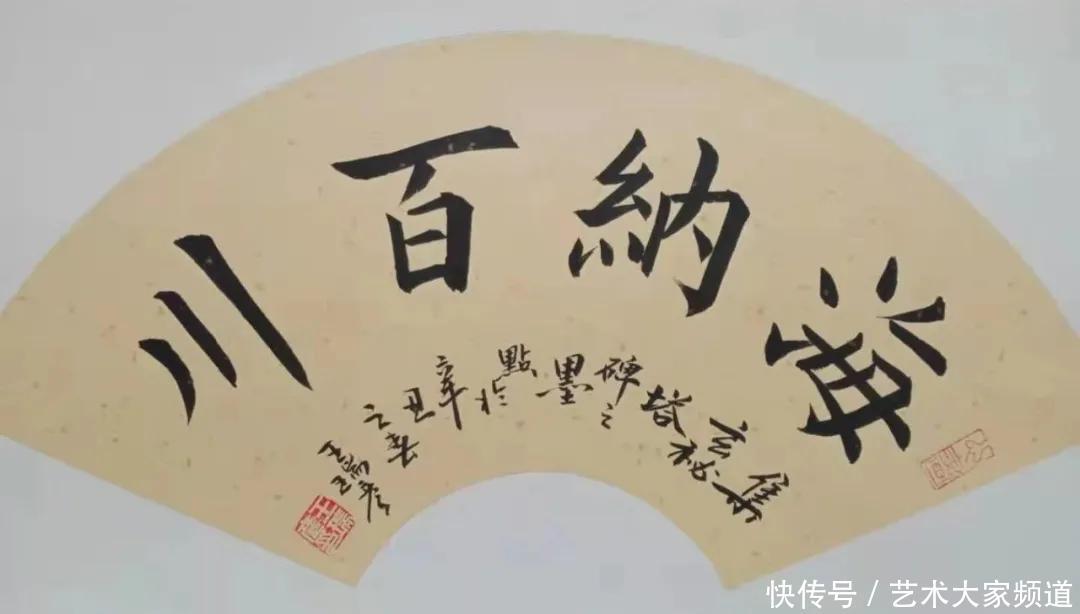 海納百川
集
玄秘
塔
碑之
墨
點於
辛
丑
之春
快传号 / 艺术大家频道